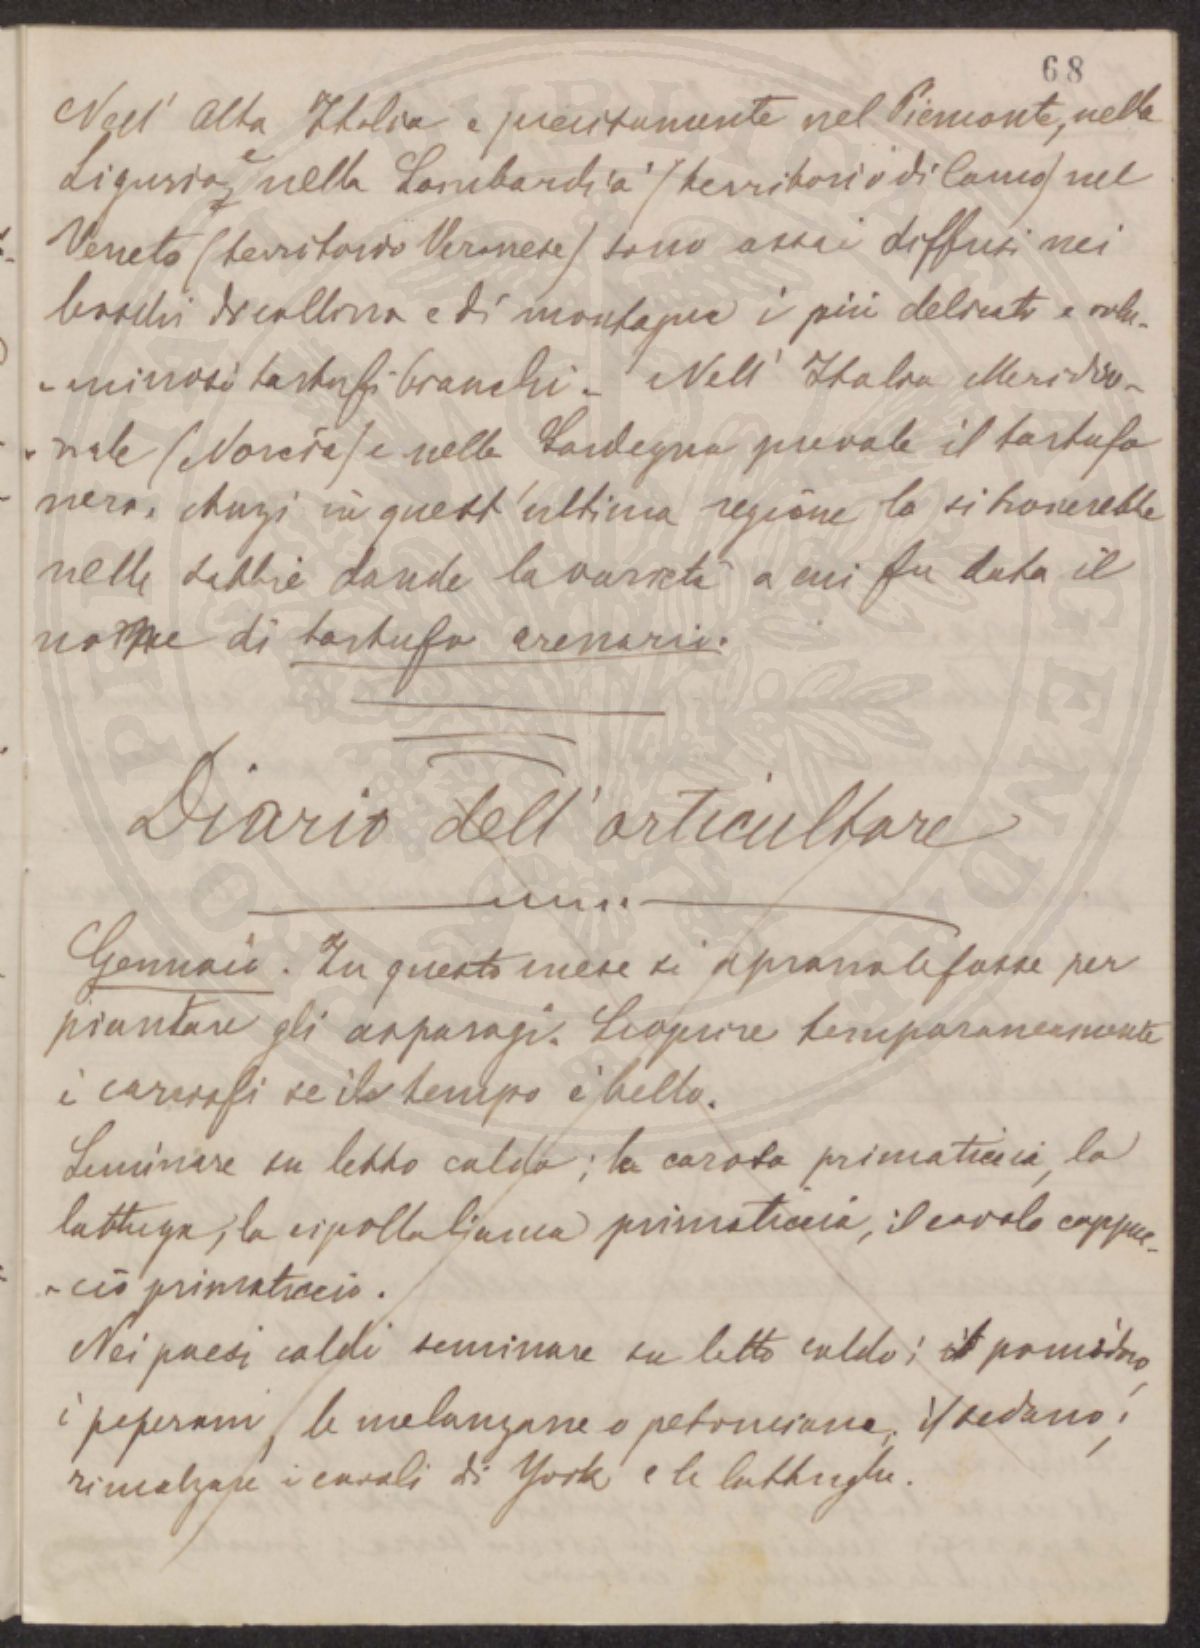 68
Nell' Alta Italia e precisamente nel Piemonte, nella
Liguria, e nella Lombardia (territorio di Como) nel
Veneto (territorio Veronese) sono assai diffusi nei
boschi di collina e di montagna i più delicati e volu-
-minosi tartufi bianchi - Nell' Italia Meridio-
-nale (Norcia) e nella Sardegna prevale il tartufo
nero. Anzi in quest'ultima regione lo si troverebbe
nelle sabbie donde la varietà a cui fu data il
nome di tartufo arenario.
Diario dell' orticultore
Gennaio. In questo mese si aprono le fosse per
piantare gli asparagi. Scoprire temporaneamente
i carciofi se il tempo è bello.
Seminare su letto caldo; la carota primaticcia, la
lattuga, la cipolla bianca primaticcia, il cavolo cappuc-
-cio primaticcio.
Nei paesi caldi seminare su letto caldo; il pomidoro,
i peperoni, le melanzane o petonciane, il sedano;
rincalzare i cavoli di York e le lattughe.